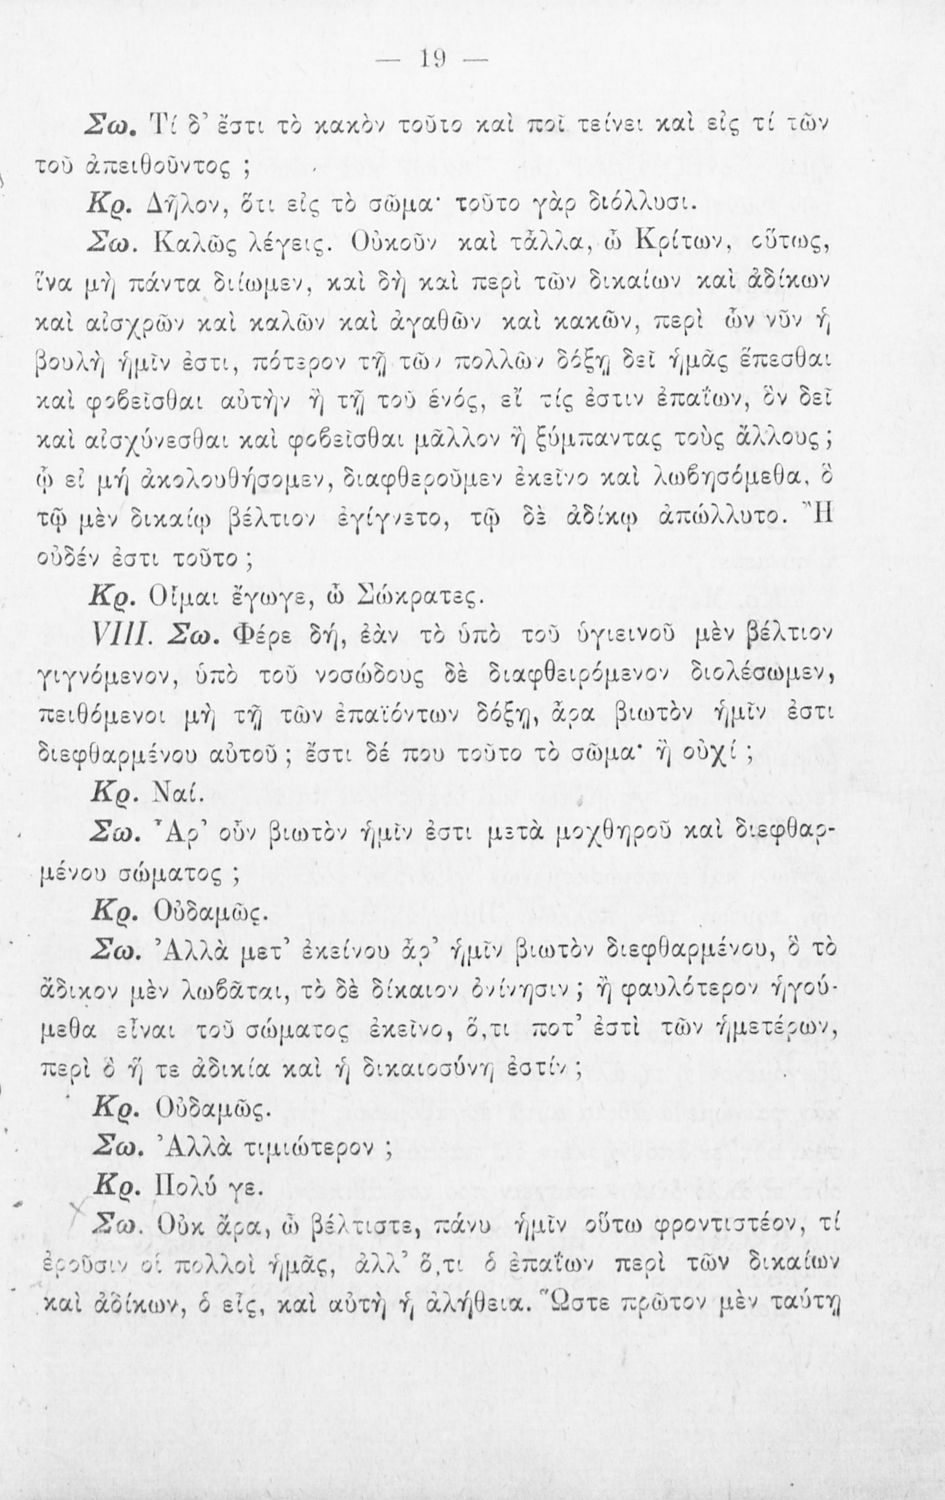 — 19 —
Σω. Τί δ’ ἔστι τὸ κακὸν τοῦτο καὶ ποῖ τείνει καὶ εἰς τί τῶν
τοῦ ἀπειθοῦντος ;
Κρ. Δῆλον, ὅτι εἰς τὸ σῶμα· τοῦτο γὰρ διόλλυσι.
Σω. Καλῶς λέγεις. Οὐκοῦν καὶ τἆλλα, ὦ Κρίτων, οὕτως,
ἵνα μὴ πάντα διίωμεν, καὶ δὴ καὶ περὶ τῶν δικαίων καὶ ἀδίκων
καὶ αἰσχρῶν καὶ καλῶν καὶ ἀγαθῶν καὶ κακῶν, περὶ ὧν νῦν ἡ
βουλὴ ἡμῖν ἐστι, πότερον τῇ τῶν πολλῶν δόξῃ δεῖ ἡμᾶς ἕπεσθαι
καὶ φοβεῖσθαι αὐτὴν ἢ τῇ τοῦ ἑνός, εἴ τίς ἐστιν ἐπαΐων, ὃν δεῖ
καὶ αἰσχύνεσθαι καὶ φοβεῖσθαι μᾶλλον ἢ ξύμπαντας τοὺς ἄλλους ;
ᾧ εἰ μή ἀκολουθήσομεν, διαφθεροῦμεν ἐκεῖνο καὶ λωβησόμεθα, ὃ
τῷ μὲν δικαίῳ βέλτιον ἐγίγνετο, τῷ δὲ ἀδίκῳ ἀπώλλυτο. Ἢ
οὐδέν ἐστι τοῦτο ;
Κρ. Οἶμαι ἔγωγε, ὦ Σώκρατες.
VIII. Σω. Φέρε δή, ἐὰν τὸ ὑπὸ τοῦ ὑγιεινοῦ μὲν βέλτιον
γιγνόμενον, ὑπὸ τοῦ νοσώδους δὲ διαφθειρόμενον διολέσωμεν,
πειθόμενοι μὴ τῇ τῶν ἐπαϊόντων δόξῃ, ἆρα βιωτὸν ἡμῖν ἐστι
διεφθαρμένου αὐτοῦ ; ἔστι δέ που τοῦτο τὸ σῶμα· ἢ οὐχί ;
Κρ. Ναί.
Σω. Ἆρ’ οὖν βιωτὸν ἡμῖν ἐστι μετὰ μοχθηροῦ καὶ διεφθαρ-
μένου σώματος ;
Κρ. Οὐδαμῶς.
Σω. Ἀλλὰ μετ’ ἐκείνου ἆρ’ ἡμῖν βιωτὸν διεφθαρμένου, ὃ τὸ
ἄδικον μὲν λωβᾶται, τὸ δὲ δίκαιον ὀνίνησιν ; ἢ φαυλότερον ἡγού-
μεθα εἶναι τοῦ σώματος ἐκεῖνο, ὅ,τι ποτ’ ἐστὶ τῶν ἡμετέρων,
περὶ ὃ ἥ τε ἀδικία καὶ ἡ δικαιοσύνη ἐστίν ;
Κρ. Οὐδαμῶς.
Σω. Ἀλλὰ τιμιώτερον ;
Κρ. Πολύ γε.
Σω. Οὐκ ἄρα, ὦ βέλτιστε, πάνυ ἡμῖν οὕτω φροντιστέον, τί
ἐροῦσιν οἱ πολλοὶ ἡμᾶς, ἀλλ’ ὅ,τι ὁ ἐπαΐων περὶ τῶν δικαίων
καὶ ἀδίκων, ὁ εἷς, καὶ αὐτὴ ἡ ἀλήθεια. Ὥστε πρῶτον μὲν ταύτῃ